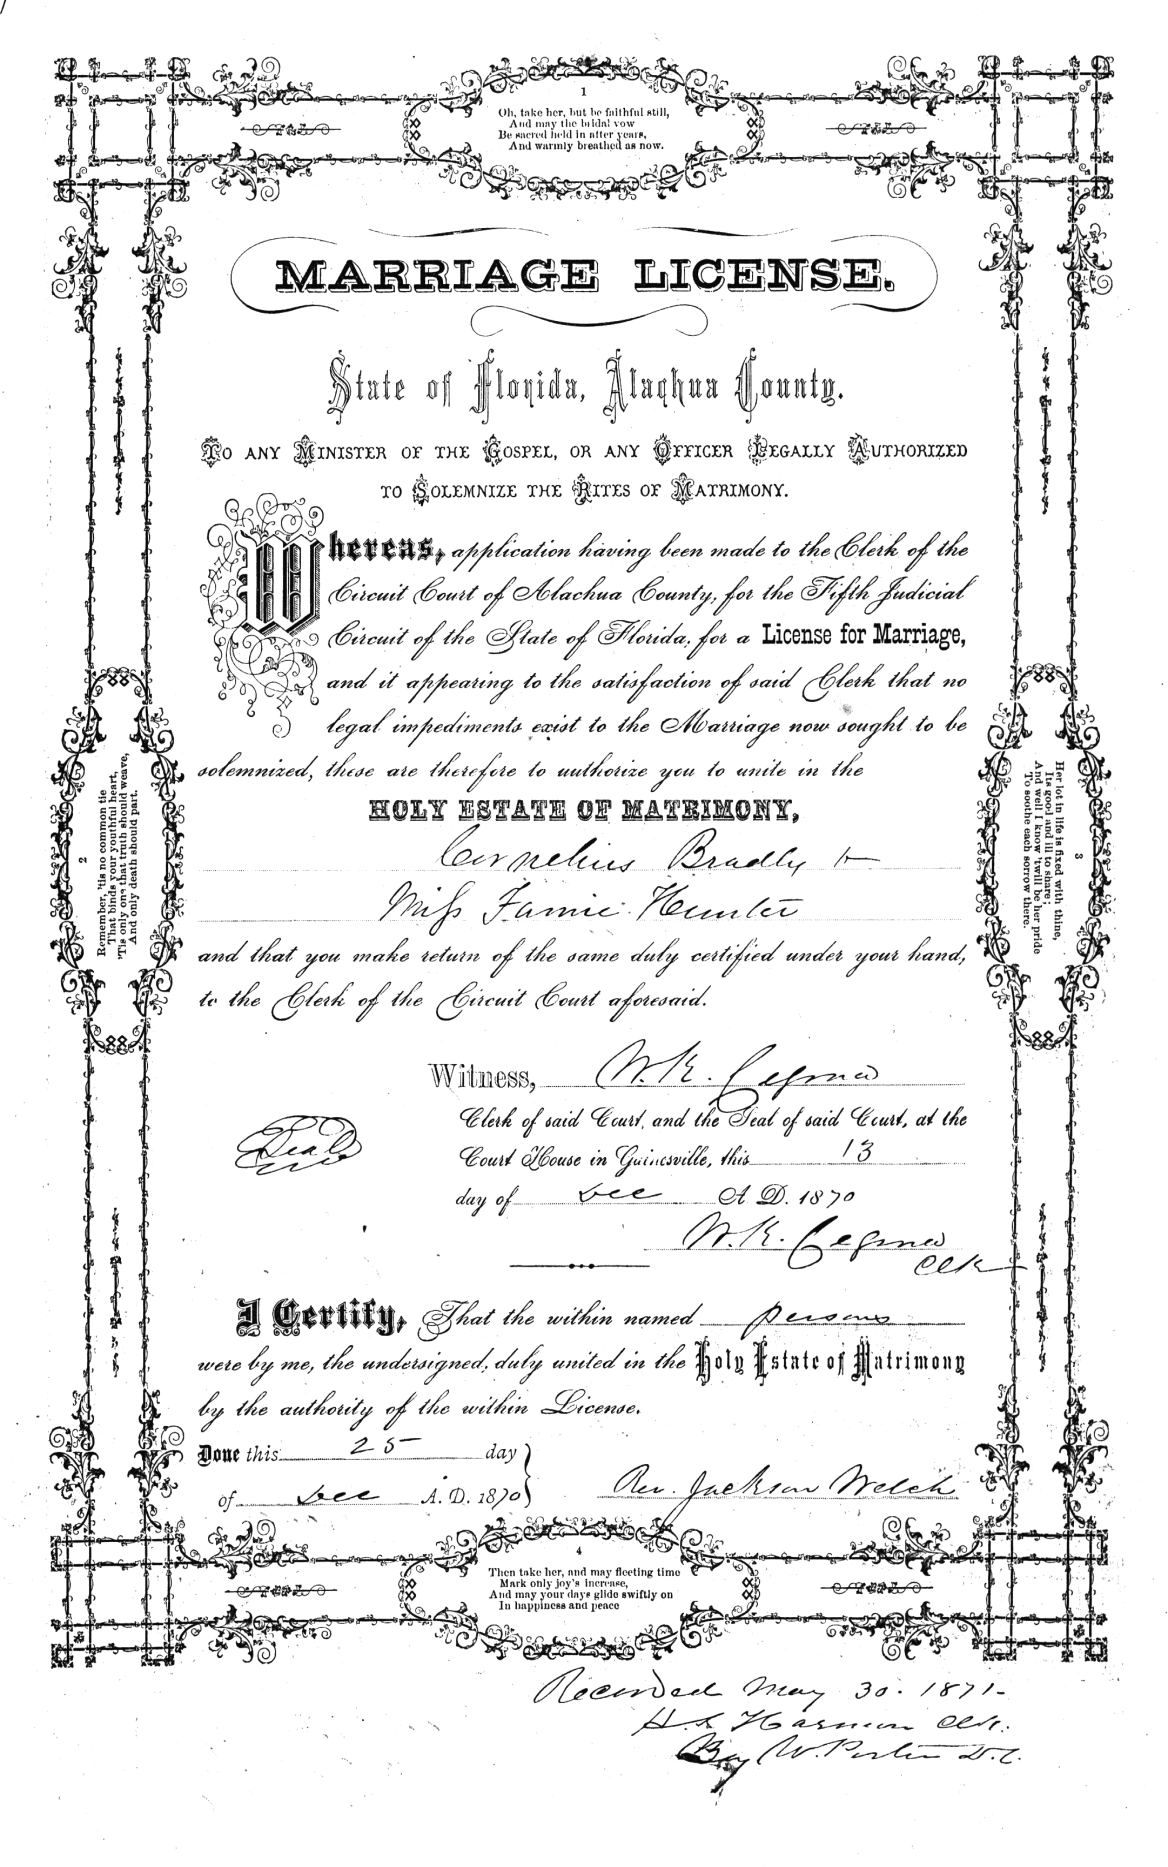 1
Oh, take her, but be faithful still,
And may the bridal vow
Be sacred held in after years,
And warmly breathed as now.
MARRIAGE LICENSE.
State of Florida, Alachua County.
TO ANY MINISTER OF THE GOSPEL, OR ANY OFFICER LEGALLY AUTHORIZED
TO SOLEMNIZE THE RITES OF MATRIMONY.
Whereas, application having been made to the Clerk of the
Circuit Court of Alachua County, for the Fifth Judicial
Circuit of the State of Florida, for a License for Marriage,
and it appearing to the satisfaction of said Clerk that no
legal impediments exist to the Marriage now sought to be
solemnized, these are therefore to authorize you to unite in the
HOLY ESTATE OF MATRIMONY,
Cornelius Bradly to
Miss Fannie Hunter
and that you make return of the same duly certified under your hand,
to the Clerk of the Circuit Court aforesaid.
2
Remember, 'tis no common tie
That binds your youthful heart,
'Tis only one that truth should weave,
And only death should part.
3
Her lot in life is fixed with thine,
Its good and ill to share;
And well I know 'twill be her pride
To soothe each sorrow there.
Witness, W. K. Cessna
Clerk of said Court, and the Seal of said Court, at the
Seal
Court House in Gainesville, this 13
day of Dec A. D. 1870
W. K. Cessna
Clk
I Certify, That the within named persons
were by me, the undersigned, duly united in the Holy Estate of Matrimony
by the authority of the within License.
Done this 25 day
of Dec A. D. 1870
Rev. Jackson Welch
4
Then take her, and may fleeting time
Mark only joy's increase,
And may your days glide swiftly on
In happiness and peace
Recorded May 30. 1871.
H. S. Harmon Clk.
By W. Porter D.C.